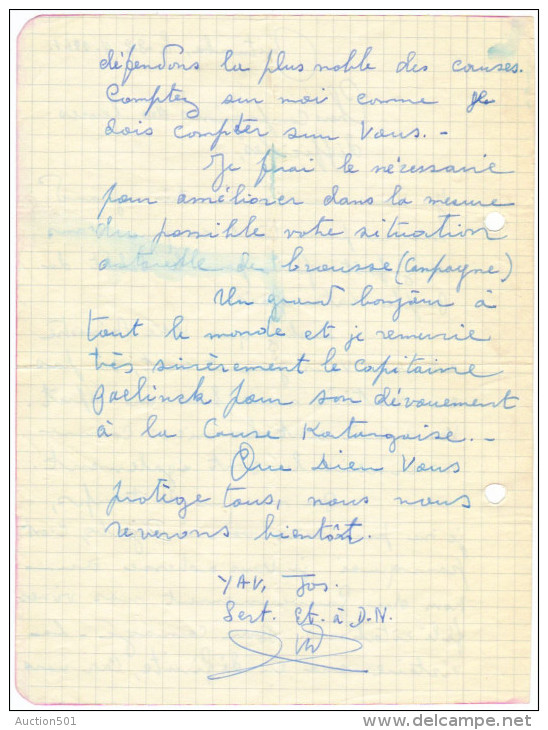 défendons la plus noble des causes.
Comptez sur moi comme je
dois compter sur Vous. -
Je ferai le nécessaire
pour améliorer dans la mesure
du possible votre situation
de brousse (Campagne)
Un grand bonjour à
tout le monde et je remercie
très sincèrement le capitaine
pour son dévouement
à la Cause Katangaise. -
Que Dieu Vous
protège tous, nous nous
reverons bientôt.
YAV, Jos.
Sert. Et. à D.N.
Auction501
www.delcampe.net